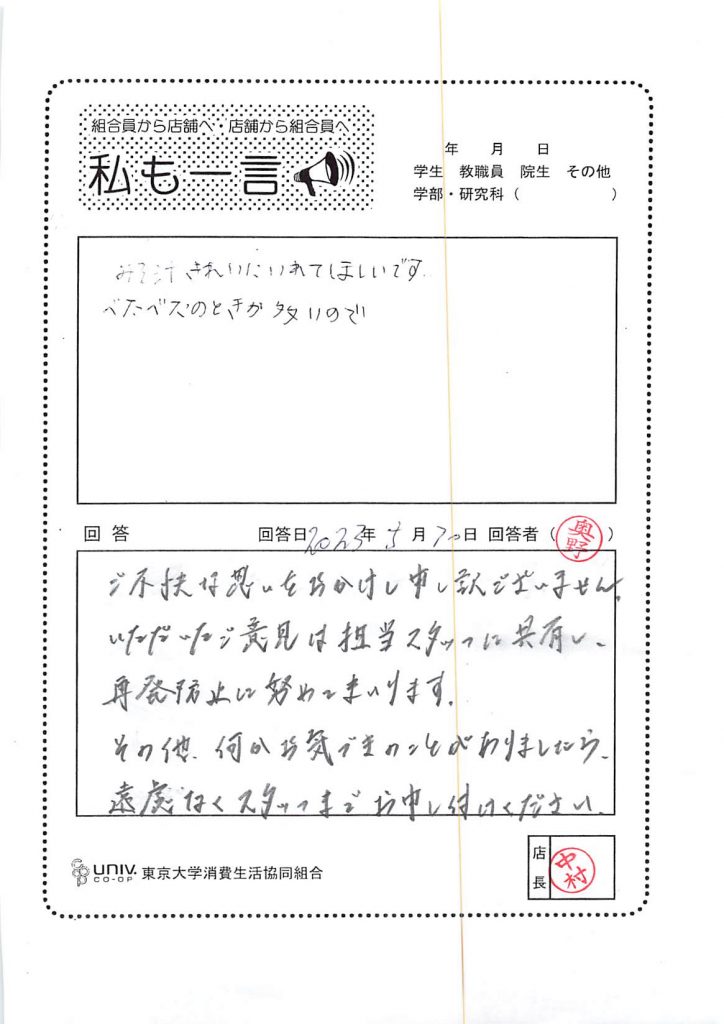 組合員から店舗へ・店舗から組合員へ
私も一言
年 月 日
学生 教職員 院生 その他
学部・研究科 ( )
みそ汁きれいにいれてほしいです.
ベタベタのときが多いので
回答 回答日2023年5月 日 回答者 (奥野)
ご不快な思いをおかけし申し訳ございません。
いただいたご意見は担当スタッフに共有し、
再発防止に努めてまいります。
その他、何かお気づきのことがありましたら、
遠慮なくスタッフまでお申し付けください。
UNIV. CO-OP 東京大学消費生活協同組合
店長 中村